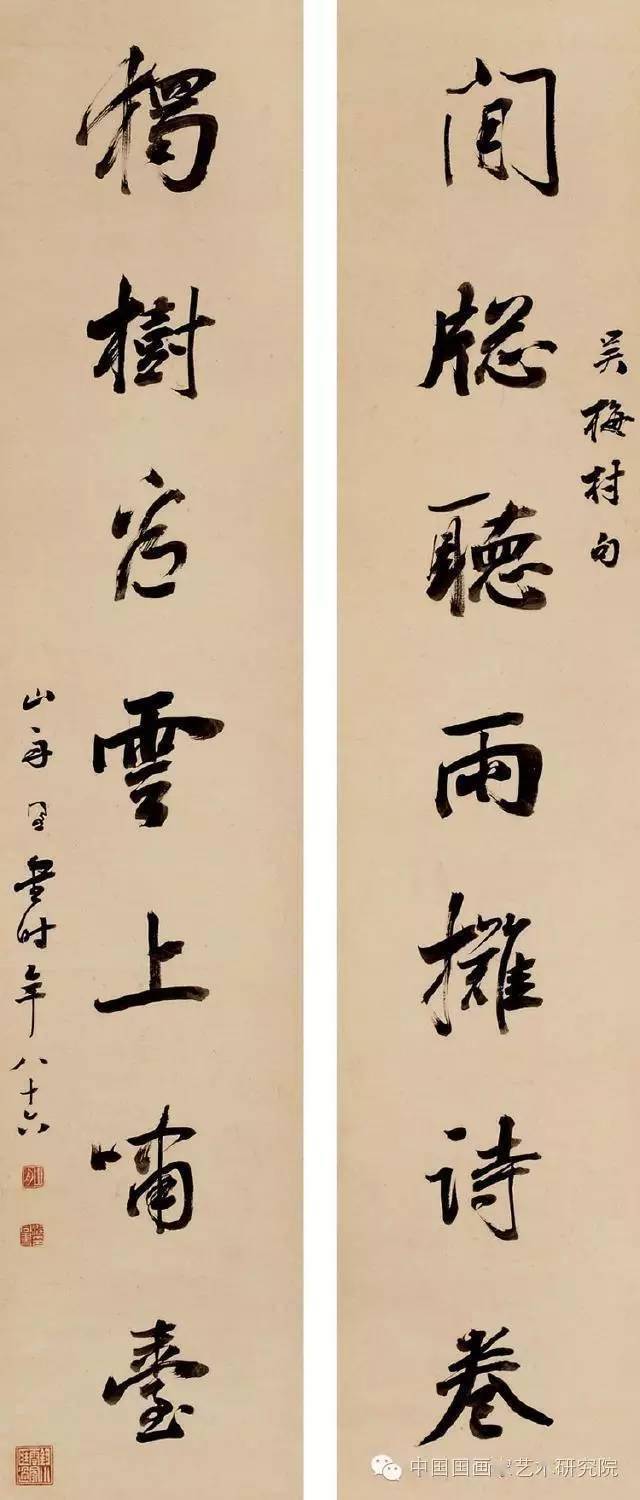 吴梅村句
閒牕聽雨攤詩卷
獨樹看雲上嘯臺
山舟同書时年八十六
中国国画艺术研究院